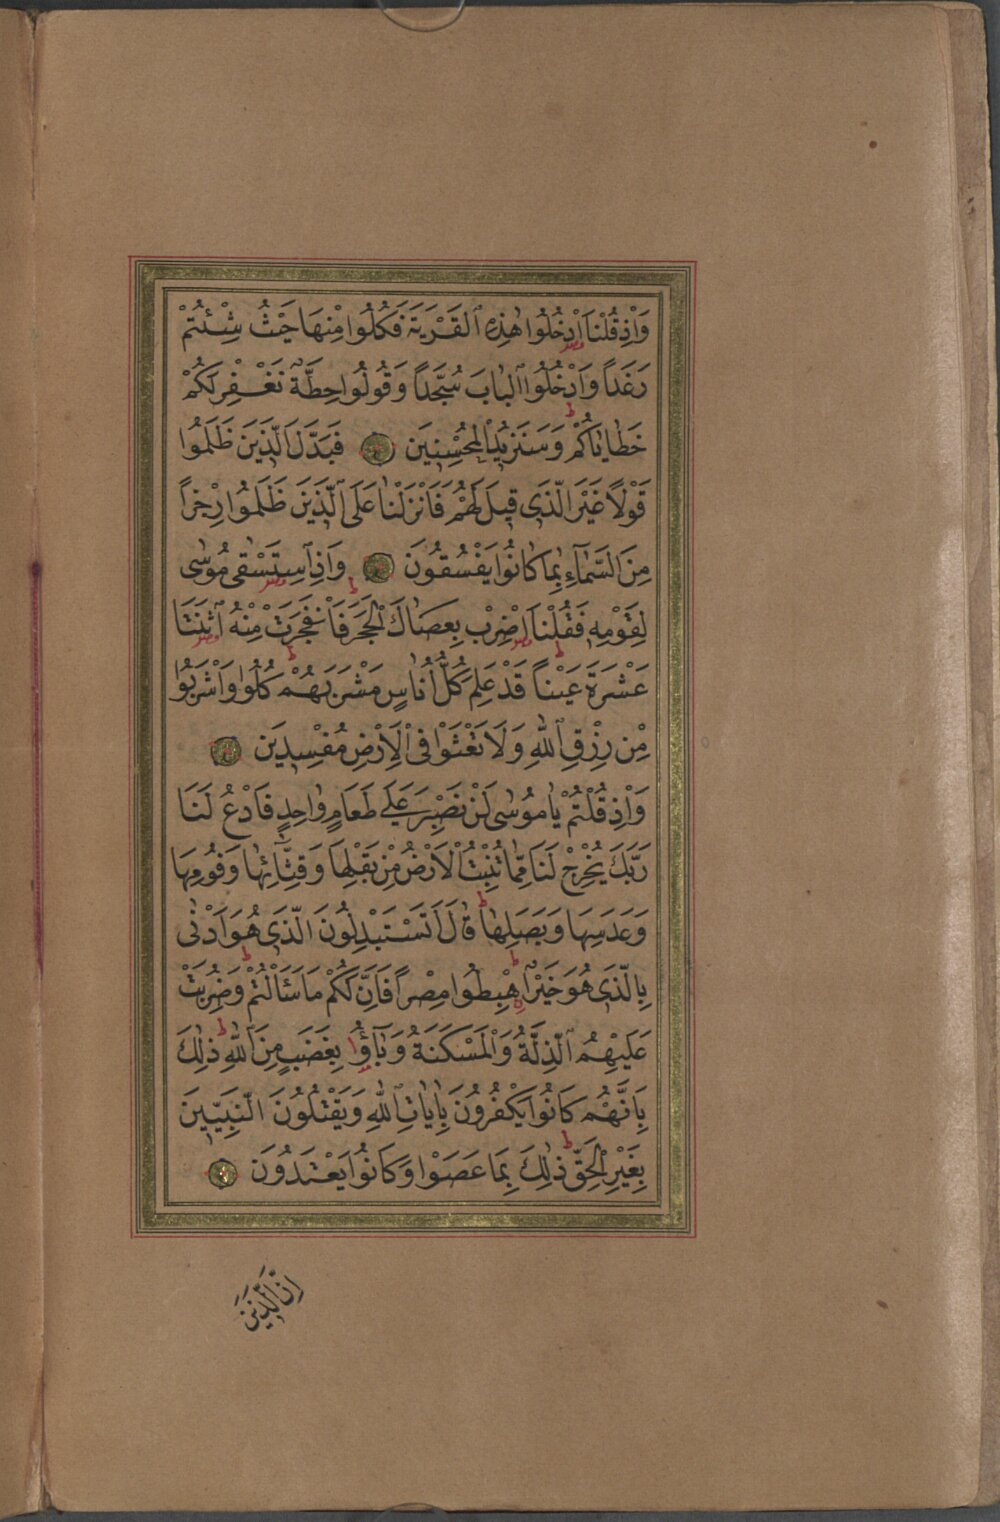 وَاِذْ قُلْنَا ادْخُلُوا هٰذِهِ الْقَرْيَةَ فَكُلُوا مِنْهَا حَيْثُ شِئْتُمْ
رَغَداً وَادْخُلُوا الْبَابَ سُجَّداً وَقُولُوا حِطَّةٌ نَغْفِرْ لَكُمْ
خَطَايَاكُمْ وَسَنَزِيدُ الْمُحْسِنِينَ فَبَدَّلَ الَّذِينَ ظَلَمُوا
قَوْلاً غَيْرَ الَّذِى قِيلَ لَهُمْ فَاَنْزَلْنَا عَلَى الَّذِينَ ظَلَمُوا رِجْزاً
مِنَ السَّمَآءِ بِمَا كَانُوا يَفْسُقُونَ وَاِذِ اسْتَسْقٰى مُوسٰى
لِقَوْمِهِ فَقُلْنَا اضْرِبْ بِعَصَاكَ الْحَجَرَ فَانْفَجَرَتْ مِنْهُ اثْنَتَا
عَشْرَةَ عَيْناً قَدْ عَلِمَ كُلُّ اُنَاسٍ مَشْرَبَهُمْ كُلُوا وَاشْرَبُوا
مِنْ رِزْقِ اللّٰهِ وَلَا تَعْثَوْا فِى الْاَرْضِ مُفْسِدِينَ
وَاِذْ قُلْتُمْ يَا مُوسٰى لَنْ نَصْبِرَ عَلٰى طَعَامٍ وَاحِدٍ فَادْعُ لَنَا
رَبَّكَ يُخْرِجْ لَنَا مِمَّا تُنْبِتُ الْاَرْضُ مِنْ بَقْلِهَا وَقِثَّآئِهَا وَفُومِهَا
وَعَدَسِهَا وَبَصَلِهَا قَالَ اَتَسْتَبْدِلُونَ الَّذِى هُوَ اَدْنٰى
بِالَّذِى هُوَ خَيْرٌ اِهْبِطُوا مِصْراً فَاِنَّ لَكُمْ مَا سَئَالْتُمْ وَضُرِبَتْ
عَلَيْهِمُ الذِّلَّةُ وَالْمَسْكَنَةُ وَبَآؤُا بِغَضَبٍ مِنَ اللّٰهِ ذٰلِكَ
بِاَنَّهُمْ كَانُوا يَكْفُرُونَ بِاٰيَاتِ اللّٰهِ وَيَقْتُلُونَ النَّبِيّٖنَ
بِغَيْرِ الْحَقِّ ذٰلِكَ بِمَا عَصَوْا وَكَانُوا يَعْتَدُونَ
اِنَّ الَّذِينَ